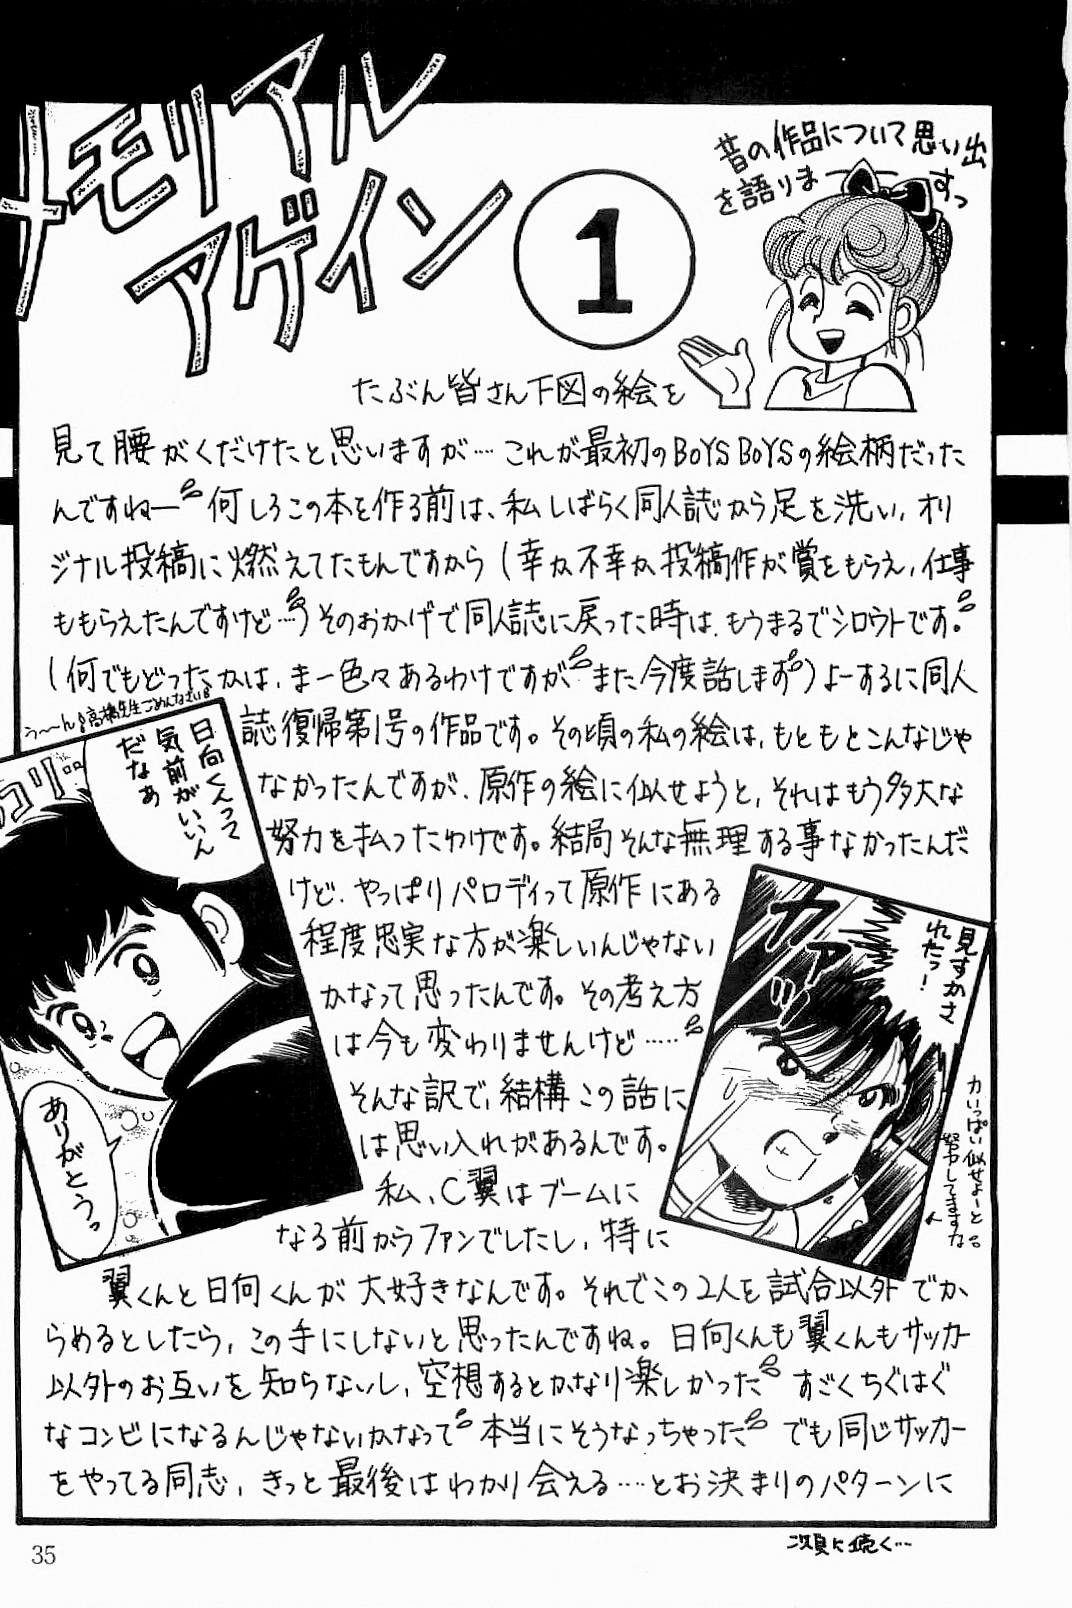 メモリアル
アゲイン
1
昔の作品について思い出
を語りま〜〜すっ
たぶん皆さん下図の絵を
見て腰がくだけたと思いますが…これが最初のBOYS BOYSの絵柄だった
んですねー 何しろこの本を作る前は、私しばらく同人誌から足を洗い、オリ
ジナル投稿に燃えてたもんですから(幸か不幸か投稿作が賞をもらえ、仕事
ももらえたんですけど…)そのおかげで同人誌に戻った時は、もうまるでシロウトです。
(何でもどったかは、まー色々あるわけですが また今度話します)よーするに同人
誌復帰第1号の作品です。その頃の私の絵は、もともとこんなじゃ
なかったんですが、原作の絵に似せようと、それはもう多大な
努力を払ったわけです。結局そんな無理する事なかったんだ
けど、やっぱりパロディって原作にある
程度忠実な方が楽しいんじゃない
かなって思ったんです。その考え方
は今も変わりませんけど……
そんな訳で、結構この話に
は思い入れがあるんです。
私、C翼はブームに
なる前からファンでしたし、特に
翼くんと日向くんが大好きなんです。それでこの2人を試合以外でか
らめるとしたら、この手にしないと思ったんですね。日向くんも翼くんもサッカー
以外のお互いを知らないし、空想するとかなり楽しかった すごくちぐはぐ
なコンビになるんじゃないかなって 本当にそうなっちゃった でも同じサッカー
をやってる同志、きっと最後はわかり会える…とお決まりのパターンに
う〜〜ん 高橋先生ごめんなさい
日向くんって
気前がいいん
だなあ
ありがとうっ
カァーッ
見すかさ
れたっ!
力いっぱい似せよーと
努力してますな
次頁に続く…
35